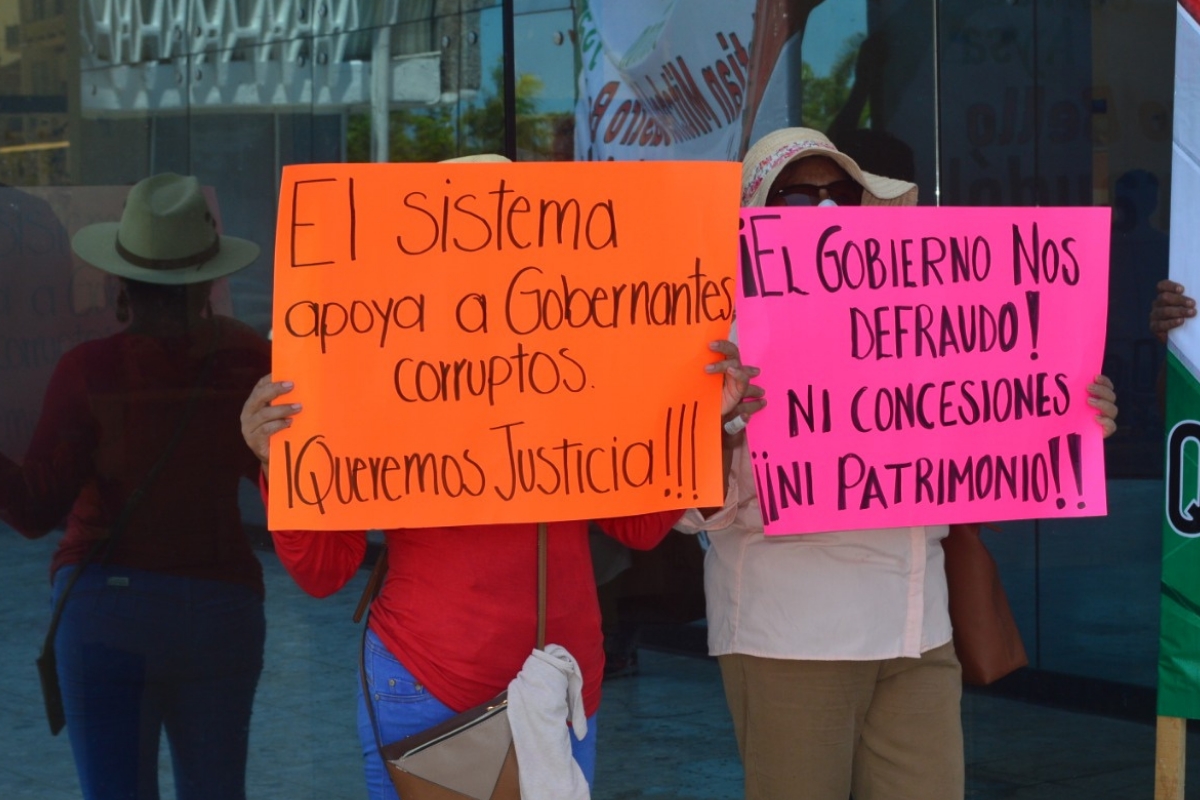 El sistema
apoya a Gobernantes
corruptos.
¡Queremos Justicia!!!
¡EL GOBIERNO NOS
DEFRAUDO!
NI CONCESIONES
¡¡NI PATRIMONIO!!
Q